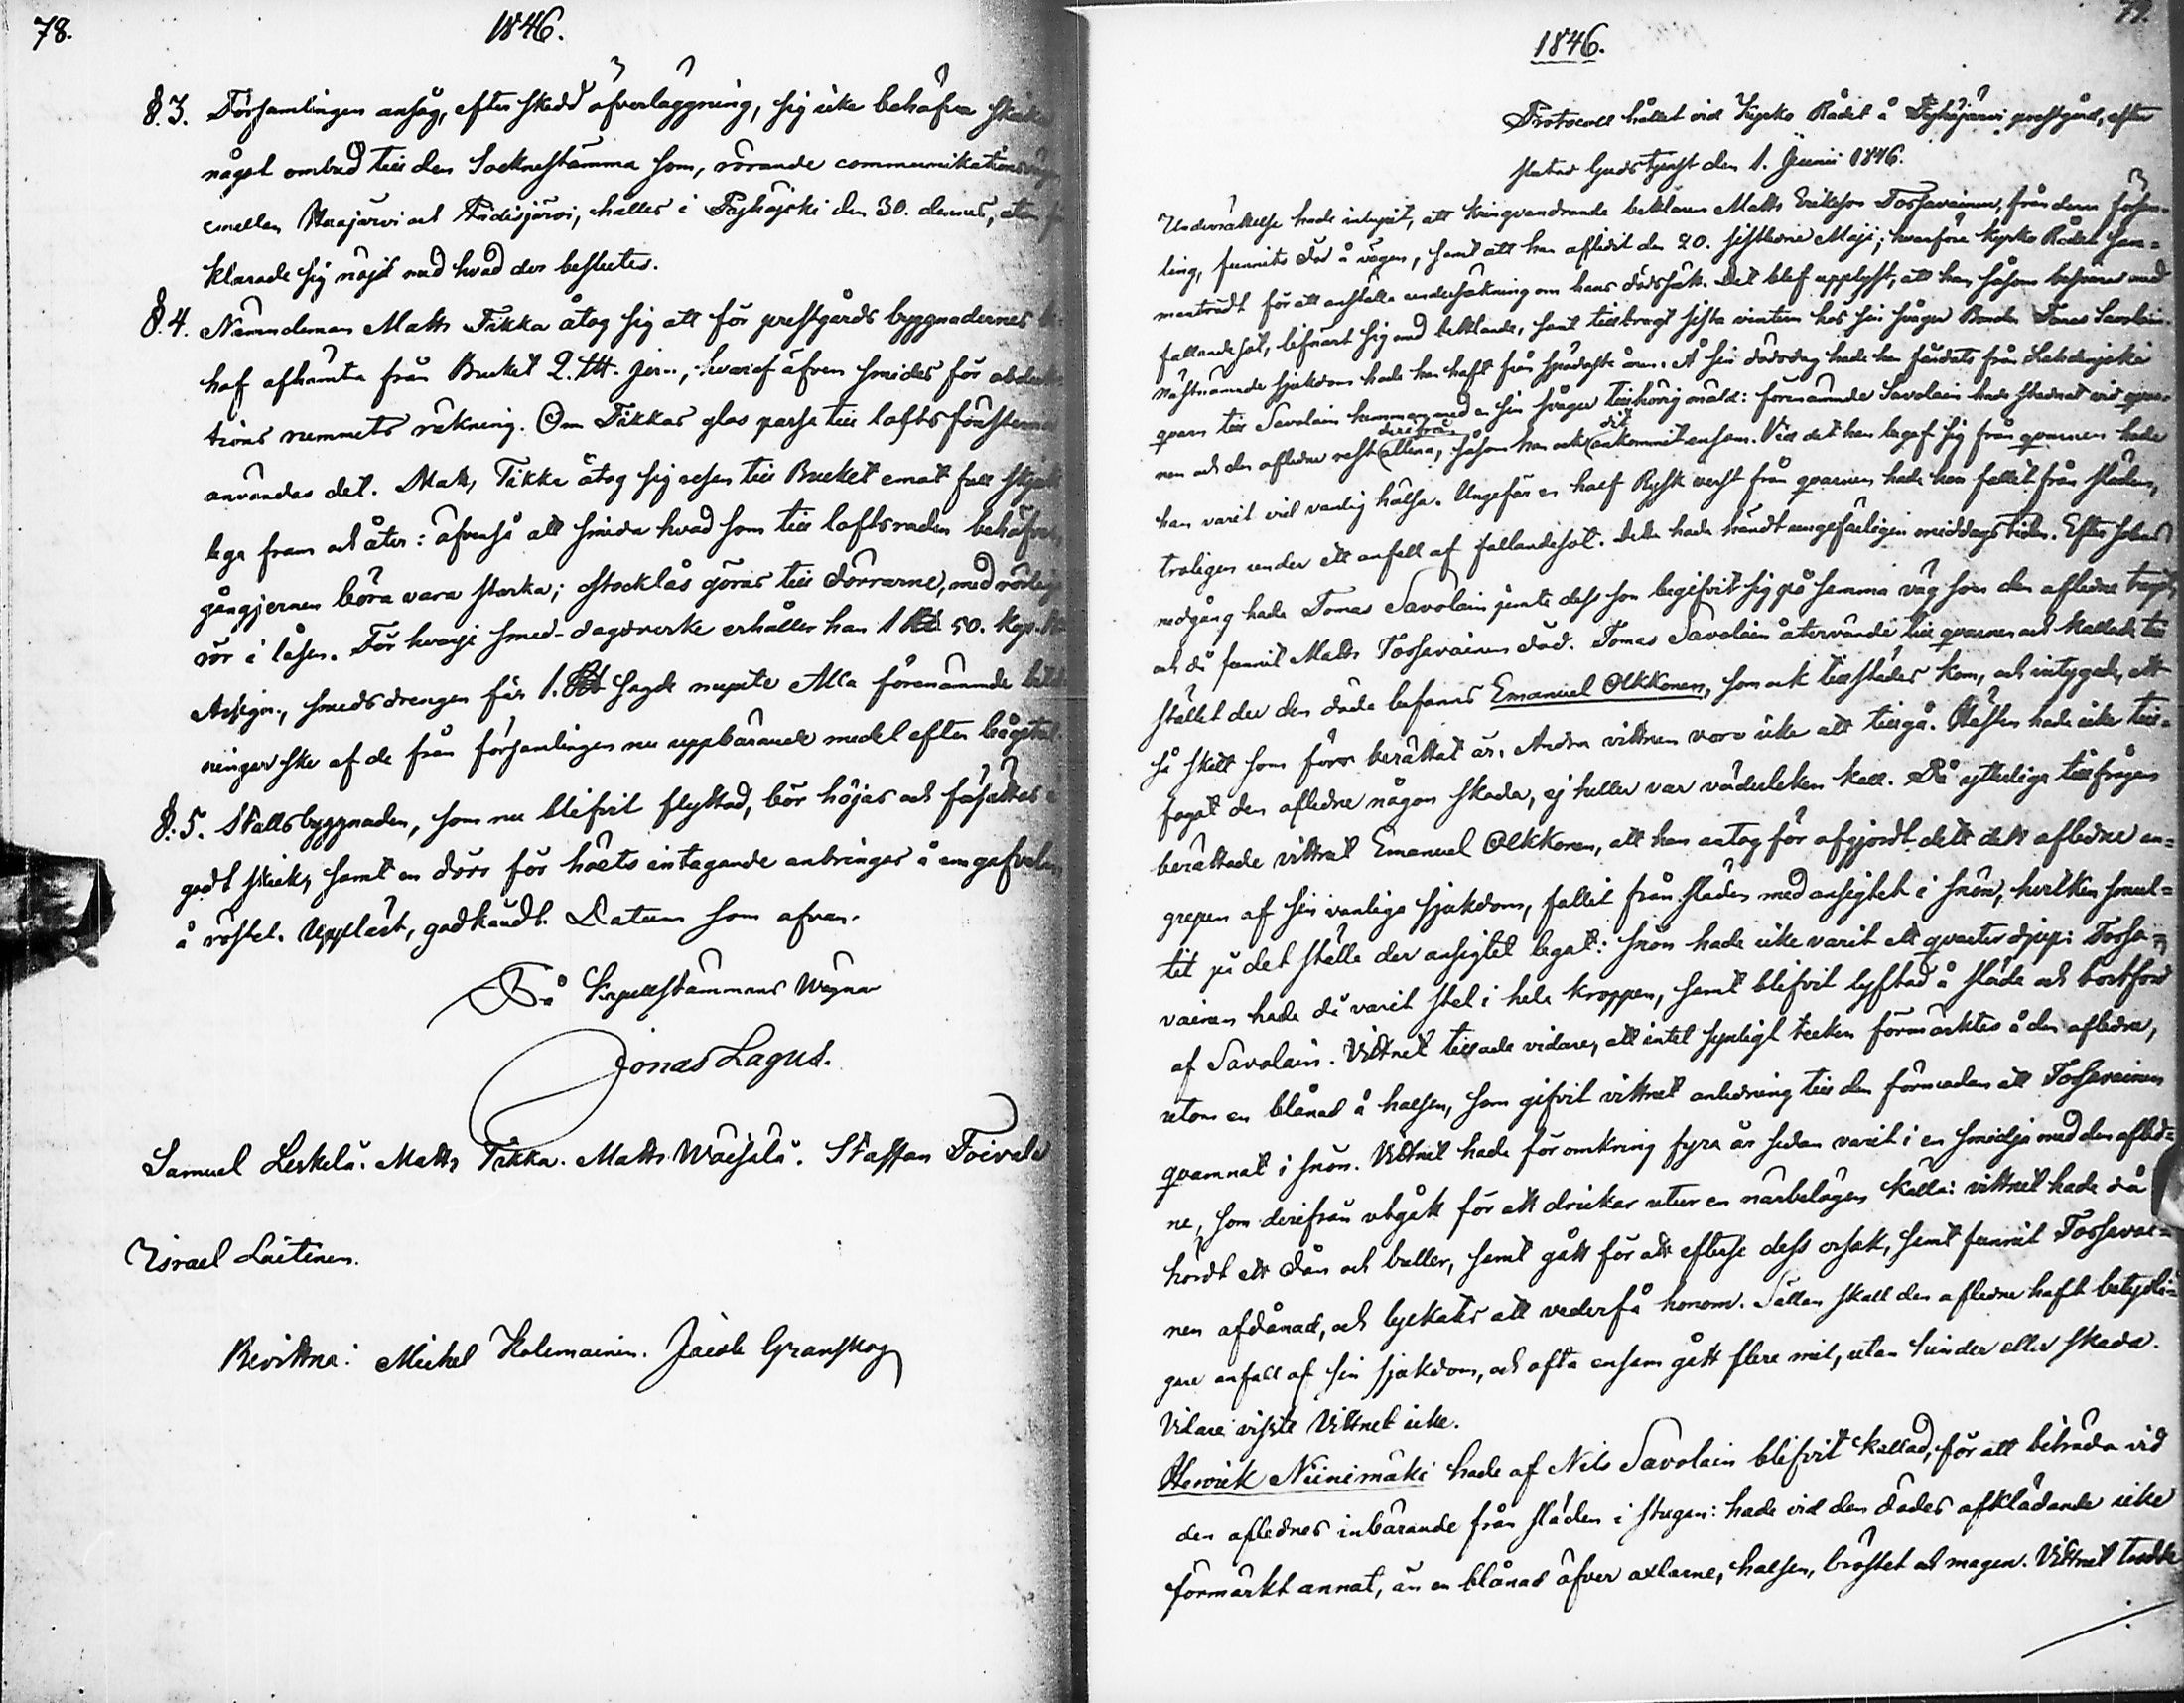 78.
1846.
§.3. Församlingen ansåg, efter skedd öfverläggning, sig icke behöfva skicka
något ombud till den Sockenstämma som, rörande communikations vägen
emellan Haajärvi och Pidisjärvi, hålles i Pyhäjoki den 30. dennes, utan för
klarade sig nöjd med hvad der beslutes.
§.4. Nämndeman Matts Tikka åtog sig att för prestgårds byggnadernes be-
hof afhämta från Bruket 2. ltt. jern, hvaraf äfven smides för obduk
tions rummets räkning. Om Tikkas glas passa till lofts fönsterna
användas det. Matts Tikka åtog sig resan till Bruket emot full skjuts
lega fram och åter: äfvenså att smida hvad som till loftsraden behöfves,
gångjernen böra vara starka; stocklås göras till dörrarne, med rörliga
rör i låsen. För hvarje smed-dagsverke erhåller han 1 Rbl 50. Kop.
Assign., smedsdrengen får 1. Rbl sagde mynte Alla förenämnde betal
ningar ske af de från församlingen nu uppbärande medel efter bågetal.
§.5. Stallsbyggnaden, som nu blifvit flyttad, bör höjas och försättas i
godt skick, samt en dörr för höets intagande anbringas å ena gafveln,
å röstet. Uppläst, godkändt. Datum som ofvan.
På Kapellstämmans Wägnar
Jonas Lagus.
Samuel Leskelä. Matts Tikka. Matts Waisälä. Staffan Toivola
Israel Laitinen.
Bevittna: Michel Holemainen. Jacob Granskog
79.
1846.
Protocoll hållet vid Kyrko Rådet å Pyhäjärvi prestgård, efter
slutad Gudstjenst den 1. Junii 1846.
Underrättelse hade inlupit, att kringvandrande beklaren Matts Eriksson Tossavainen, från denna försam-
ling, funnits död å vägen, samt att han aflidit den 20. sistledne Maji; hvarföre Kyrko Rådet sam-
manträdt för att anställa undersökning om hans dödssätt. Det blef upplyst, att han såsom behäftad med
fallandesot, lifnärt sig med bettlande, samt tillbragt sista vintern hos sin svåger Bonden Tomas Savolain.
näst nämnde sjukdom hade han haft från spädaste åren. Å sin dödsdag hade han färdats från Lahdenjoki
qvarn till Savolain hemman med en sin svåger tillhörig mäld: förenämnde Savolain hade stadnat vid qvar-
nen och den aflidne rest derifrån allena, såsom han ock dit ankommit ensam. Vid det han begaf sig från qvarnen hade
han varit vid vanlig hälsa. Ungefär en half Rysk verst från qvarnen hade han fallit från släden,
troligen under ett anfall af fallandesot. Detta hade händt ungefärligen middags tiden. Efter solens
nedgång hade Tomas Savolain jemte dess son begifvit sig på samma väg som den aflidne tagit,
och då funnit Matts Tossavainen död. Tomas Savolain återvände till qvarnen och kallade till
stället der den döde befanns Emanuel Olkkonen, som ock tillstädes kom, och intygade, att
så skett som förr berättat är. Andra vittnen voro icke att tillgå. Hästen hade icke till-
fogat den aflidne någon skada, ej heller var väderleken kall. På ytterliga tillfrågan
berättade vittnet Emanuel Olkkonen, att han antog för afgjordt det den aflidne an-
grepen af sin vanliga sjukdom, fallit från släden med ansigtet i snön, hvilken smul-
tit på det ställe der ansigtet legat: snön hade icke varit ett qvarter djup: Tossa-
vainen hade då varit stel i hela kroppen, samt blifvit lyftad å släde och bortförd
af Savolain. Vittnet tillade vidare, att intet synligt tecken förmärktes å den aflidne,
utom en blånad å halsen, som gifvit vittnet anledning till den förmodan att Tossavainen
qvamnat i snön. Vittnet hade för omkring fyra år sedan varit i en smidja med den aflid-
ne, som derifrån utgått för att dricka utur en närbelägen källa: vittnet hade då
hördt ett dån och buller, samt gått för att efterse dess orsak, samt funnit Tossavai-
nen afdånad, och lyckats att vederfå honom. Sällan skall den aflidne haft betydli-
gare anfall af sin sjukdom, och ofta ensam gått flere mil, utan hinder eller skada.
Vidare visste Vittnet icke.
Henrik Niinimäki hade af Nils Savolain blifvit kallad, för att biträda vid
den aflidnes inbärande från släden i stugan: hade vid den dödes afklädande icke
förmärkt annat, än en blånad öfver axlarne, halsen, bröstet och magen. Vittnet trodde